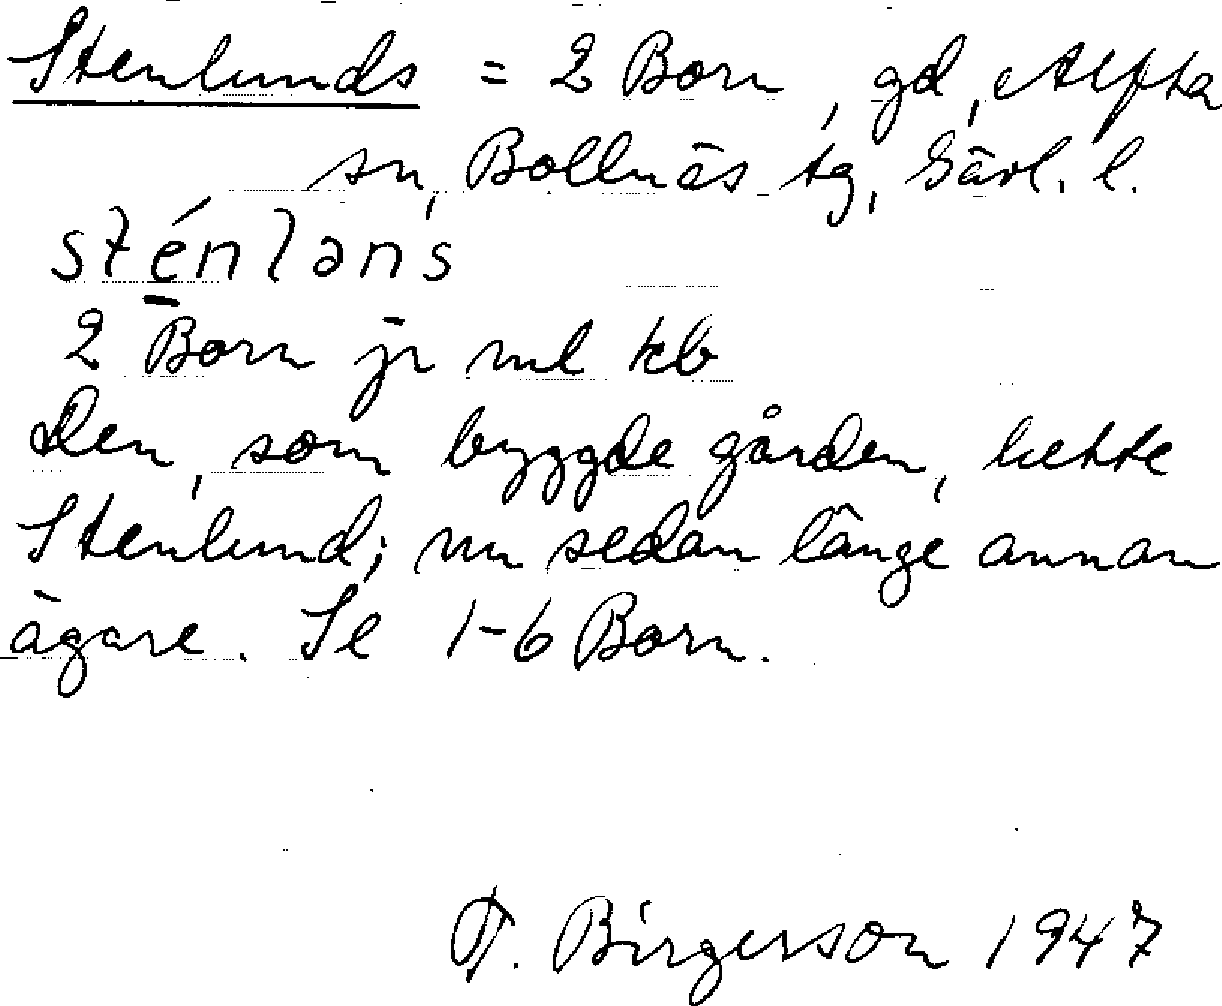 Stenlunds = 2 Born, gd, Alfta
sn, Bollnäs tg, Gävl. l.
sténlans
2 Born jr ml kb
Den, som byggde gården, hette
Stenlund; nu sedan länge annan
ägare. Se 1-6 Born.
F. Birgerson 1947